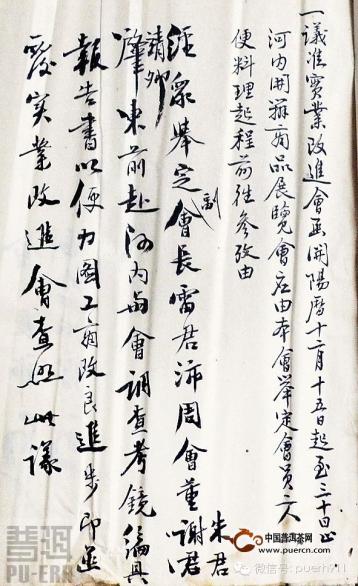 一議准實業改進會函開陽曆十二月十五日起至三十日止
河内開辦商品展覽會應由本會舉定會員二人
便料理起程前往參攷由
經眾舉定副會長雷君沛周會董謝君朱君
靖卿肇東前赴河内與會調查考鏡編具
報告書以便力圖工商改良進步即函
覆實業改進會查照此議
普洱
PU-ERH
中国普洱茶网
微信号：puerh711